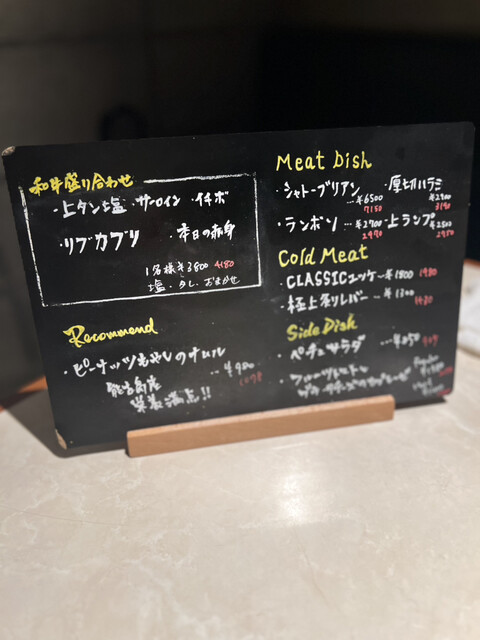 和牛盛り合わせ
・上タン塩 ・サーロイン ・イチボ
・リブカブリ ・本日の赤身
1名様 ¥3800 4180
塩・タレ・おまかせ
Recommend
・ピーナッツもやしのナムル … ¥980 1078
能古島産
栄養満点!!
Meat Dish
・シャトーブリアン ・厚切ハラミ
… ¥6500 ¥2900
7150 3190
・ランボソ … ¥2700 ・上ランプ … ¥2500
2970
Cold Meat
・CLASSICユッケ ― ¥1800 1980
・極上 レバー ― ¥1300
1430
Side Dish
・ペチュサラダ … ¥
・フルーツトマトと